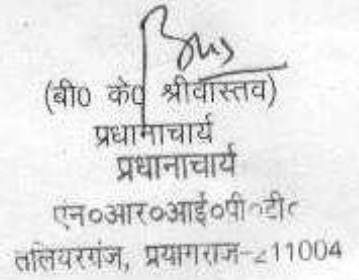 (बी0 के0 श्रीवास्तव)
प्रधानाचार्य
प्रधानाचार्य
एन०आर०आई०पी०टी०
तलियरगंज, प्रयागराज-211004